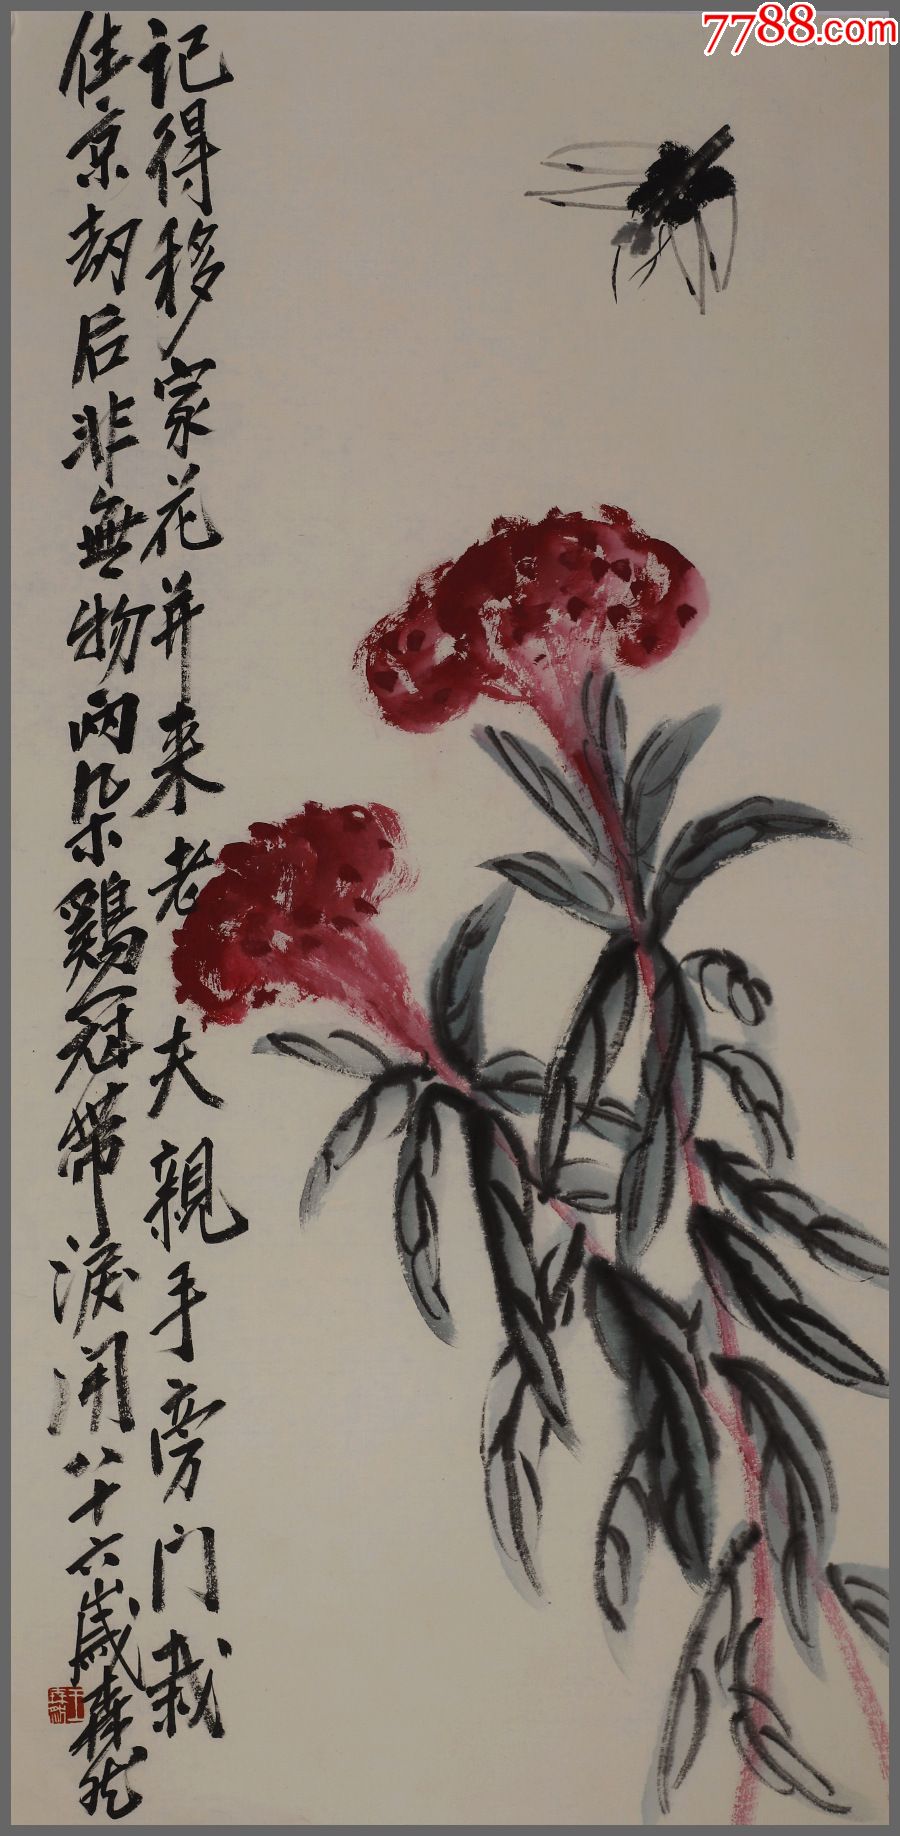 7788.com
记得移家花并来老夫親手旁门栽
住京劫后非無物两朵鷄冠带淚開八十六歲森然